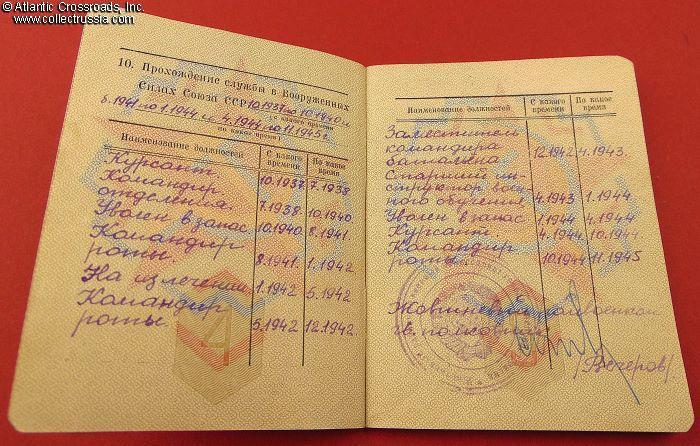 © Atlantic Crossroads, Inc.
www.collectrussia.com
10. Прохождение службы в Вооруженных
Силах Союза ССР 10.1937 по 10.1940 и
8.1941 по 1.1944 с 4.1944 по 11.1945 г.
(с какого времени
по какое время)
Наименование должностей
С какого времени
По какое время
Курсант. 10.1937 7.1938
Командир
отделения. 7.1938 10.1940
Уволен в запас 10.1940 8.1941.
Командир
роты. 8.1941. 1.1942
На излечении 1.1942 5.1942
Командир
роты. 5.1942 12.1942.
4
Наименование должностей
С какого времени
По какое время
Заместитель
командира
батальона 12.1942 4.1943.
Старший ин-
структор воен-
ного обучения 4.1943 1.1944
Уволен в запас 1.1944 4.1944
Курсант. 4.1944 10.1944
Командир
роты. 10.1944 11.1945
Жовтневый райвоенком
гв. полковник
/Вечеров/.